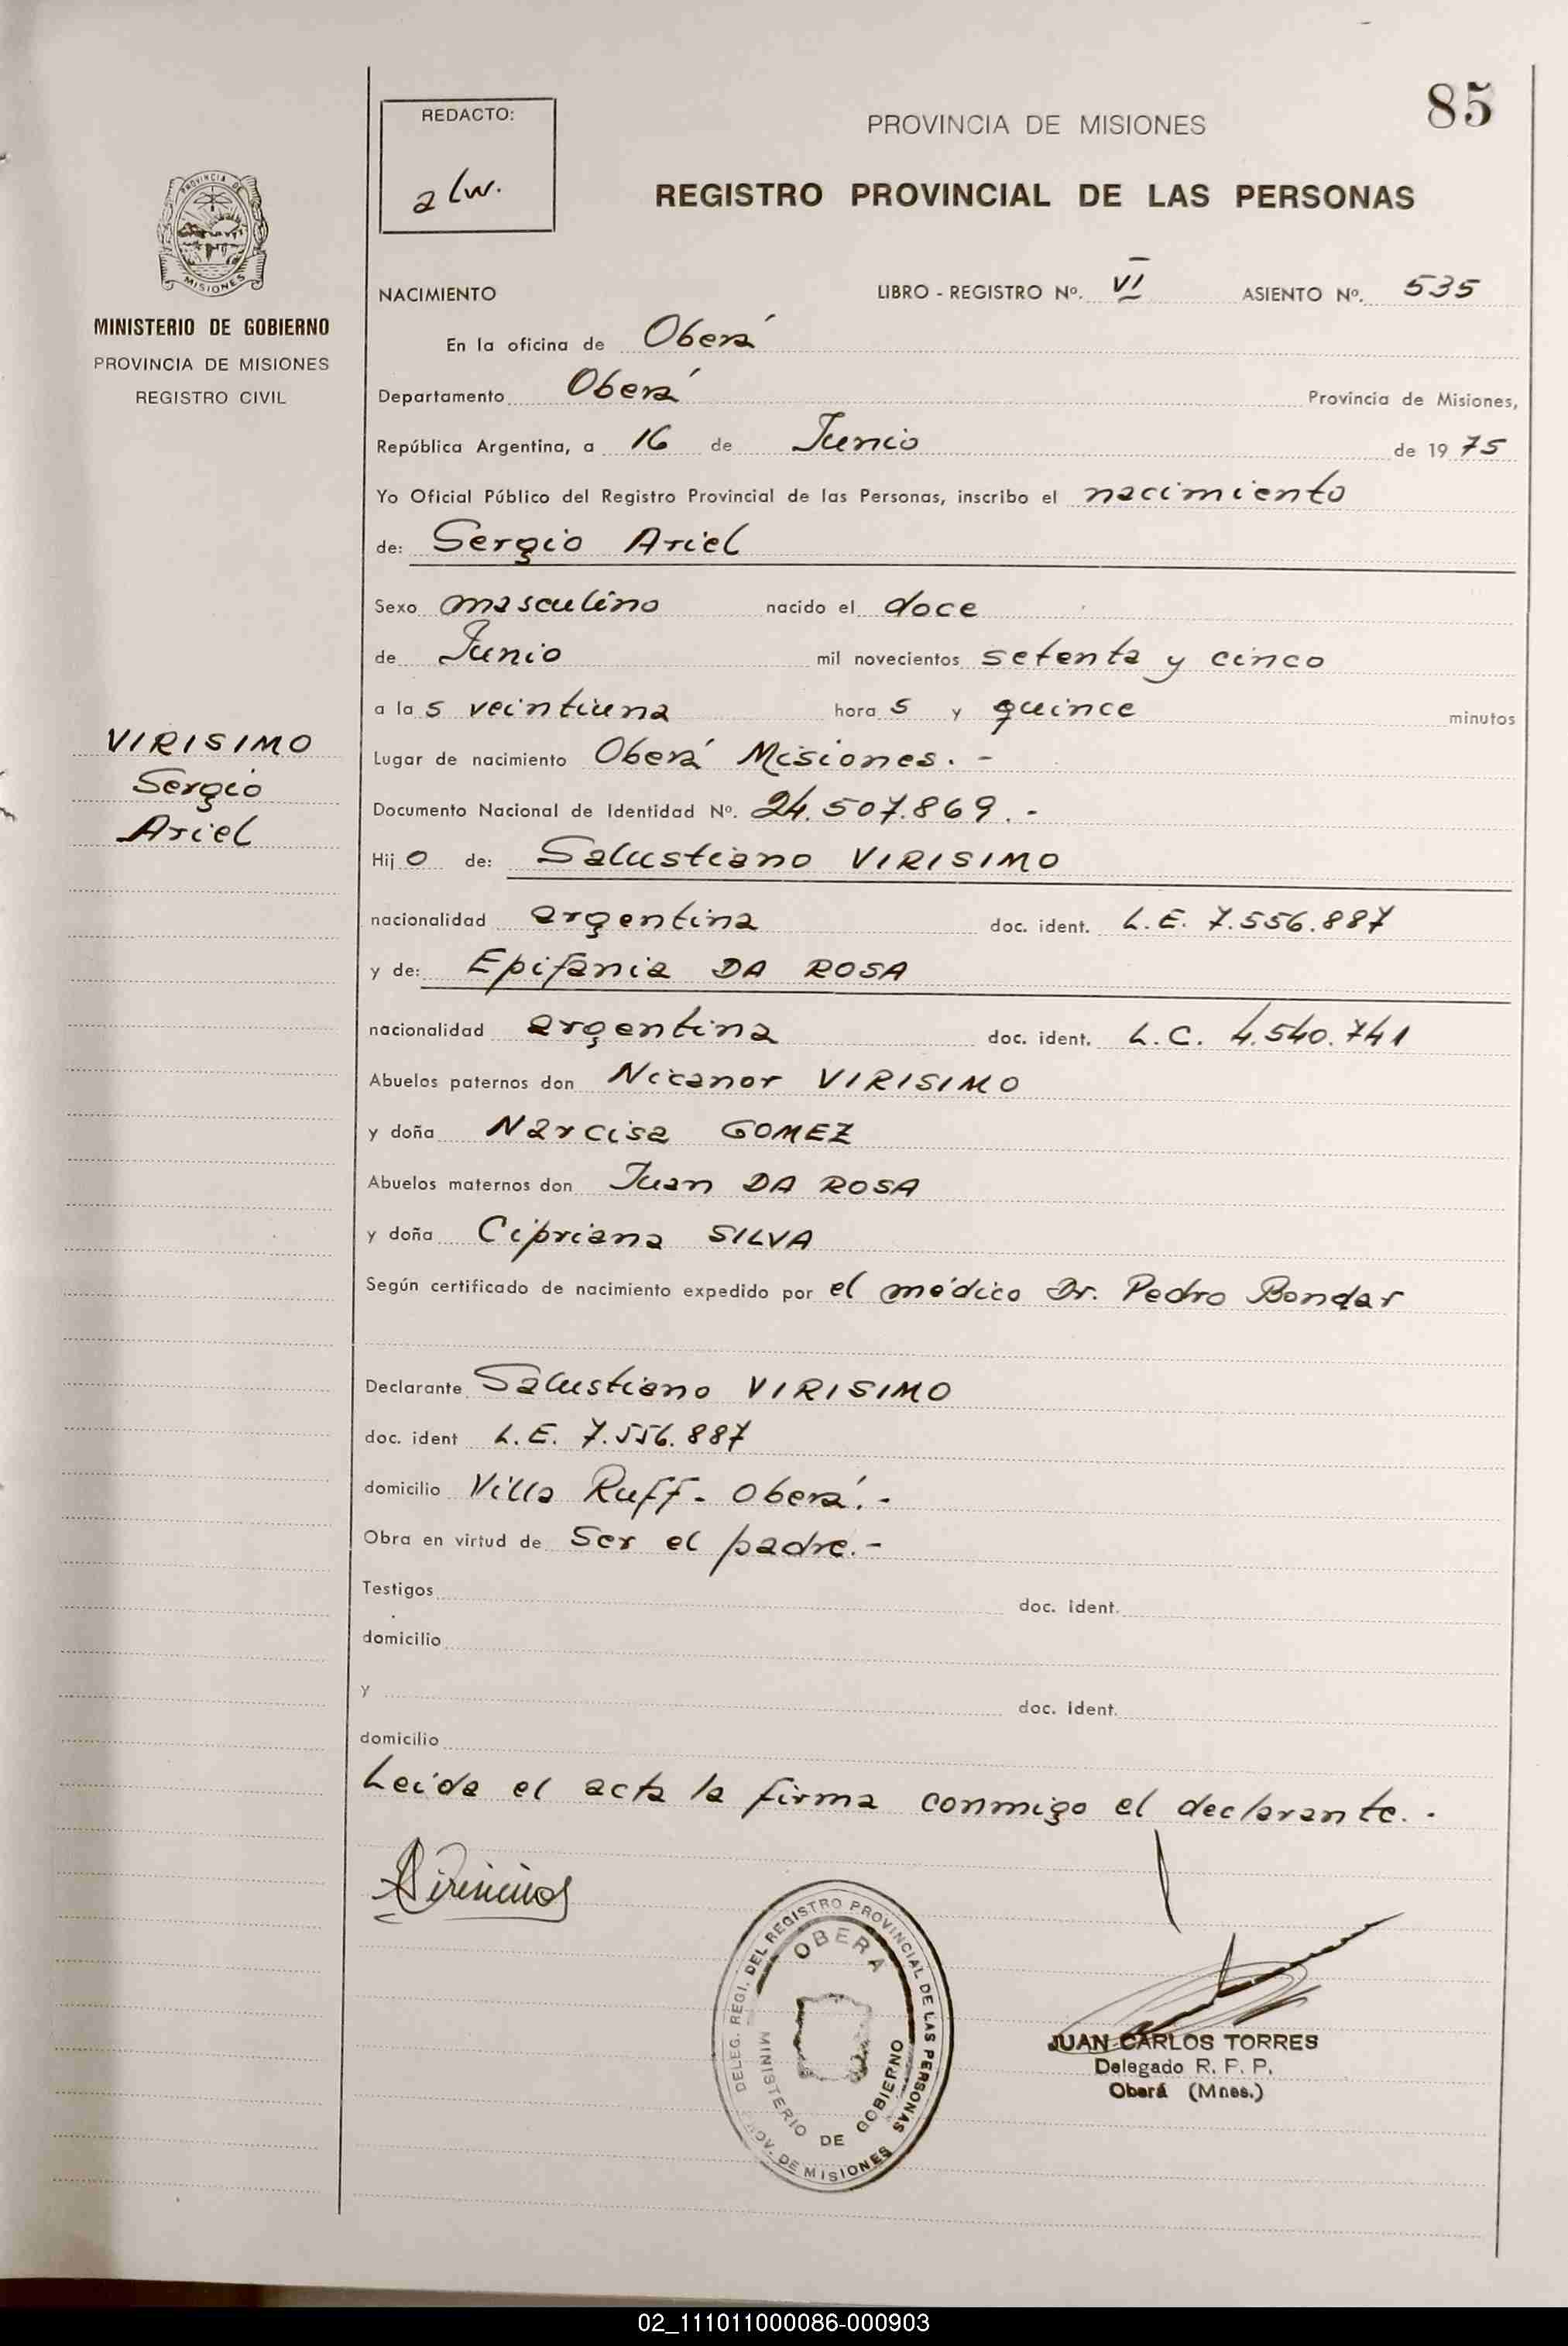 85
REDACTO:
alw.
PROVINCIA DE MISIONES
REGISTRO PROVINCIAL DE LAS PERSONAS
PROVINCIA DE
MISIONES
MINISTERIO DE GOBIERNO
PROVINCIA DE MISIONES
REGISTRO CIVIL
NACIMIENTO LIBRO - REGISTRO Nº. VI ASIENTO Nº. 535
En la oficina de Oberá
Departamento Oberá Provincia de Misiones,
República Argentina, a 16 de Junio de 1975
Yo Oficial Público del Registro Provincial de las Personas, inscribo el nacimiento
de: Sergio Ariel
Sexo masculino nacido el doce
de Junio mil novecientos setenta y cinco
a las veintiuna horas y quince minutos
VIRISIMO
Sergio
Ariel
Lugar de nacimiento Oberá Misiones. -
Documento Nacional de Identidad Nº. 24.507.869. -
Hijo de: Salustiano VIRISIMO
nacionalidad argentina doc. ident. L.E. 7.556.887
y de: Epifania DA ROSA
nacionalidad argentina doc. ident. L.C. 4.540.741
Abuelos paternos don Nicanor VIRISIMO
y doña Narcisa GOMEZ
Abuelos maternos don Juan DA ROSA
y doña Cipriana SILVA
Según certificado de nacimiento expedido por el médico Dr. Pedro Bondar
Declarante Salustiano VIRISIMO
doc. ident L.E. 7.556.887
domicilio Villa Ruff - Oberá. -
Obra en virtud de Ser el padre. -
Testigos doc. ident.
domicilio
y doc. ident.
domicilio
Leida el acta la firma conmigo el declarante. -
DELEG. REGI. DEL REGISTRO PROVINCIAL DE LAS PERSONAS
OBERA
MINISTERIO DE GOBIERNO
PROV. DE MISIONES
JUAN CARLOS TORRES
Delegado R. P. P.
Oberá (Mnes.)
02_111011000086-000903